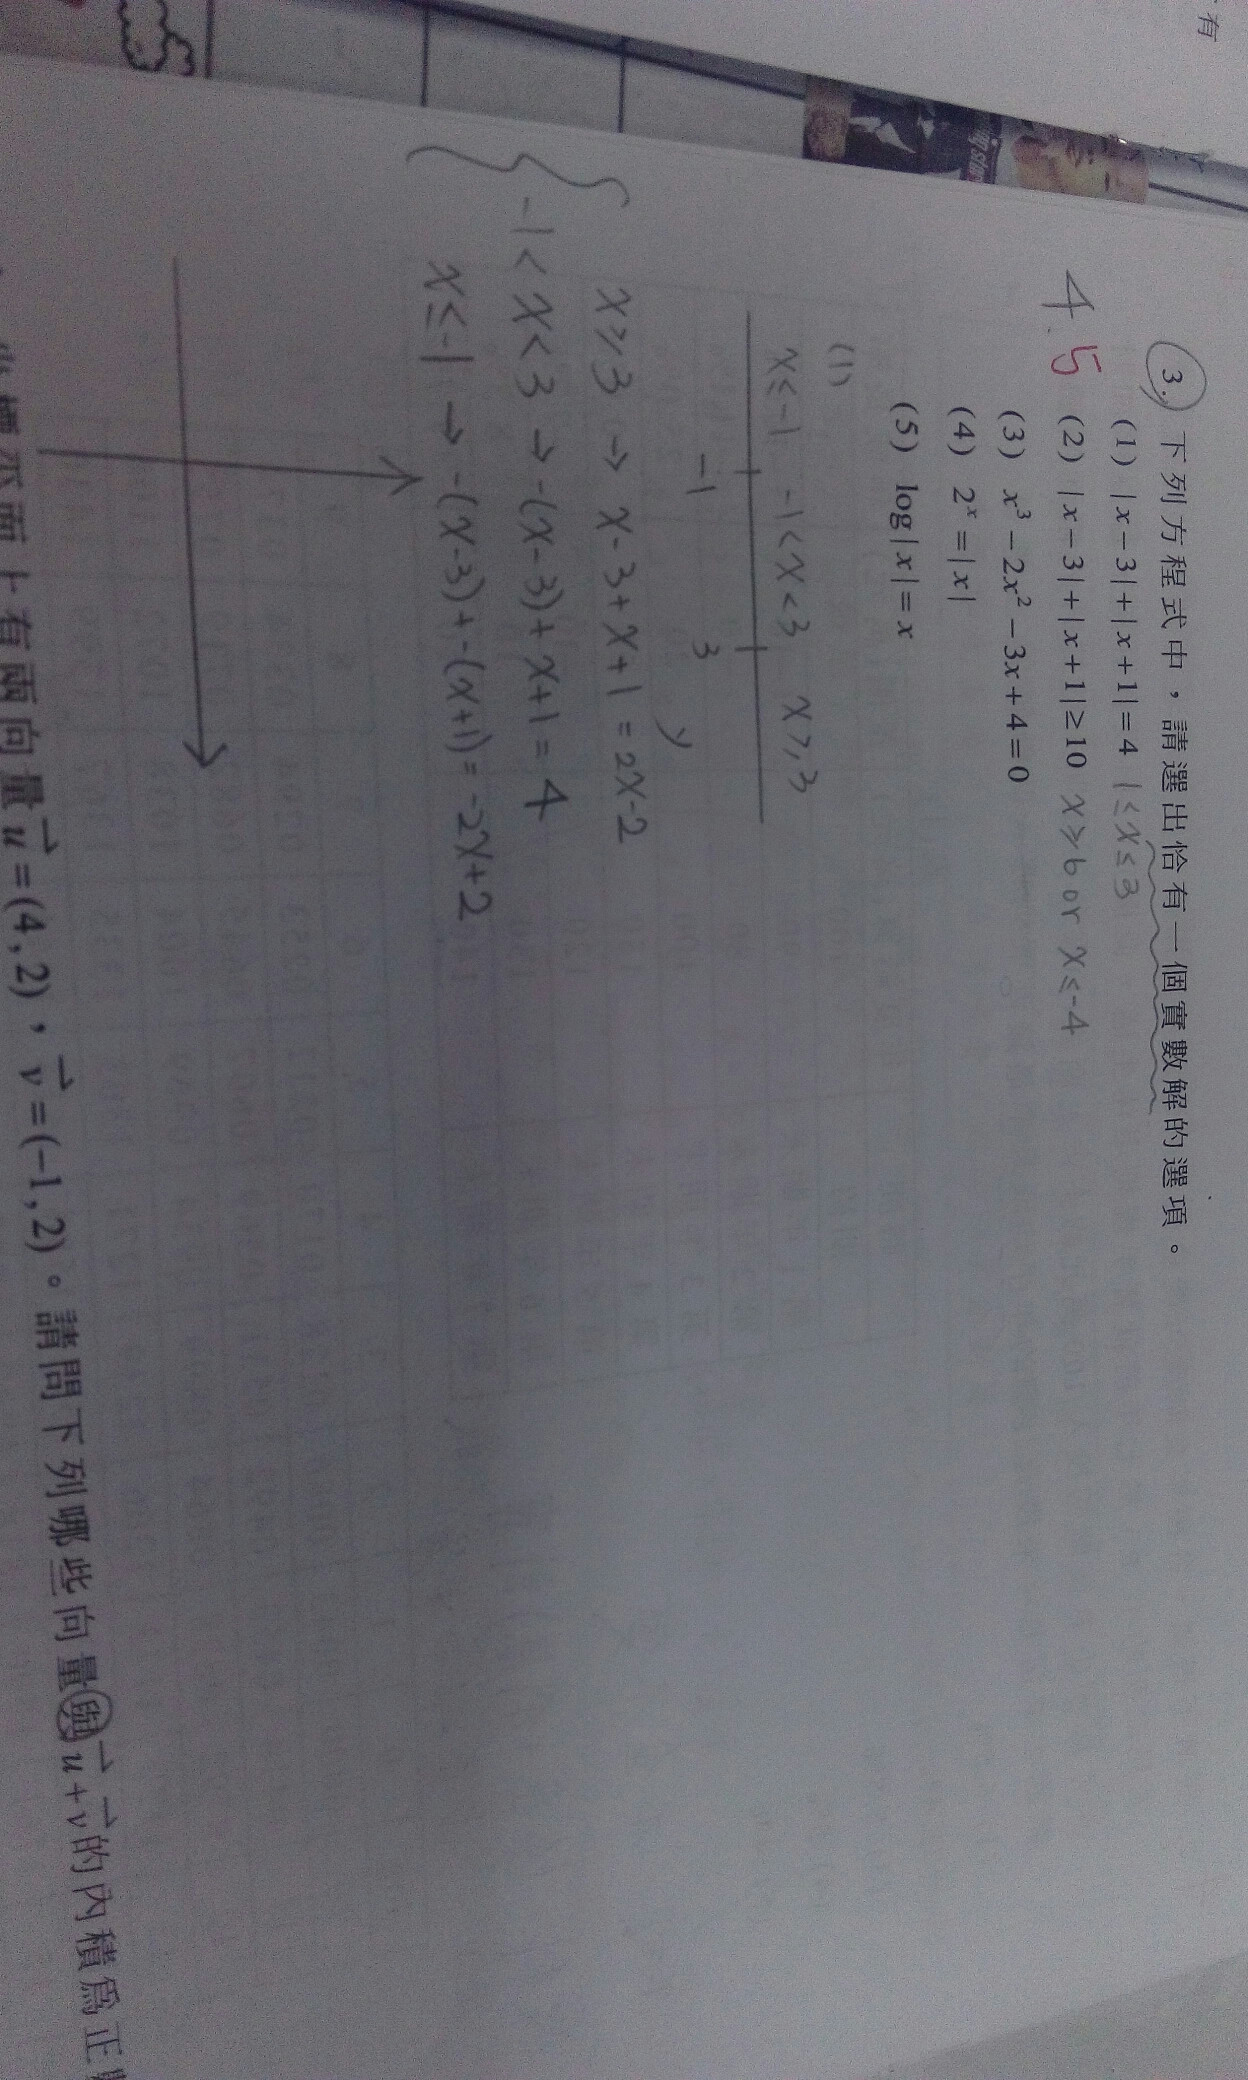 有
3. 下列方程式中，請選出恰有一個實數解的選項。
(1) |x-3|+|x+1|=4 1≤x≤3
4.5 (2) |x-3|+|x+1|≥10 x≥6 or x≤-4
(3) x³-2x²-3x+4=0
(4) 2ˣ=|x|
(5) log|x|=x
(1)
x≤-1 -1<x<3 x≥3
-1 3
x≥3 → x-3+x+1=2x-2
-1<x<3 → -(x-3)+x+1=4
x≤-1 → -(x-3)+-(x+1)=-2x+2
面上有兩向量u⃗=(4,2)，v⃗=(-1,2)。請問下列哪些向量與u⃗+v⃗的內積為正